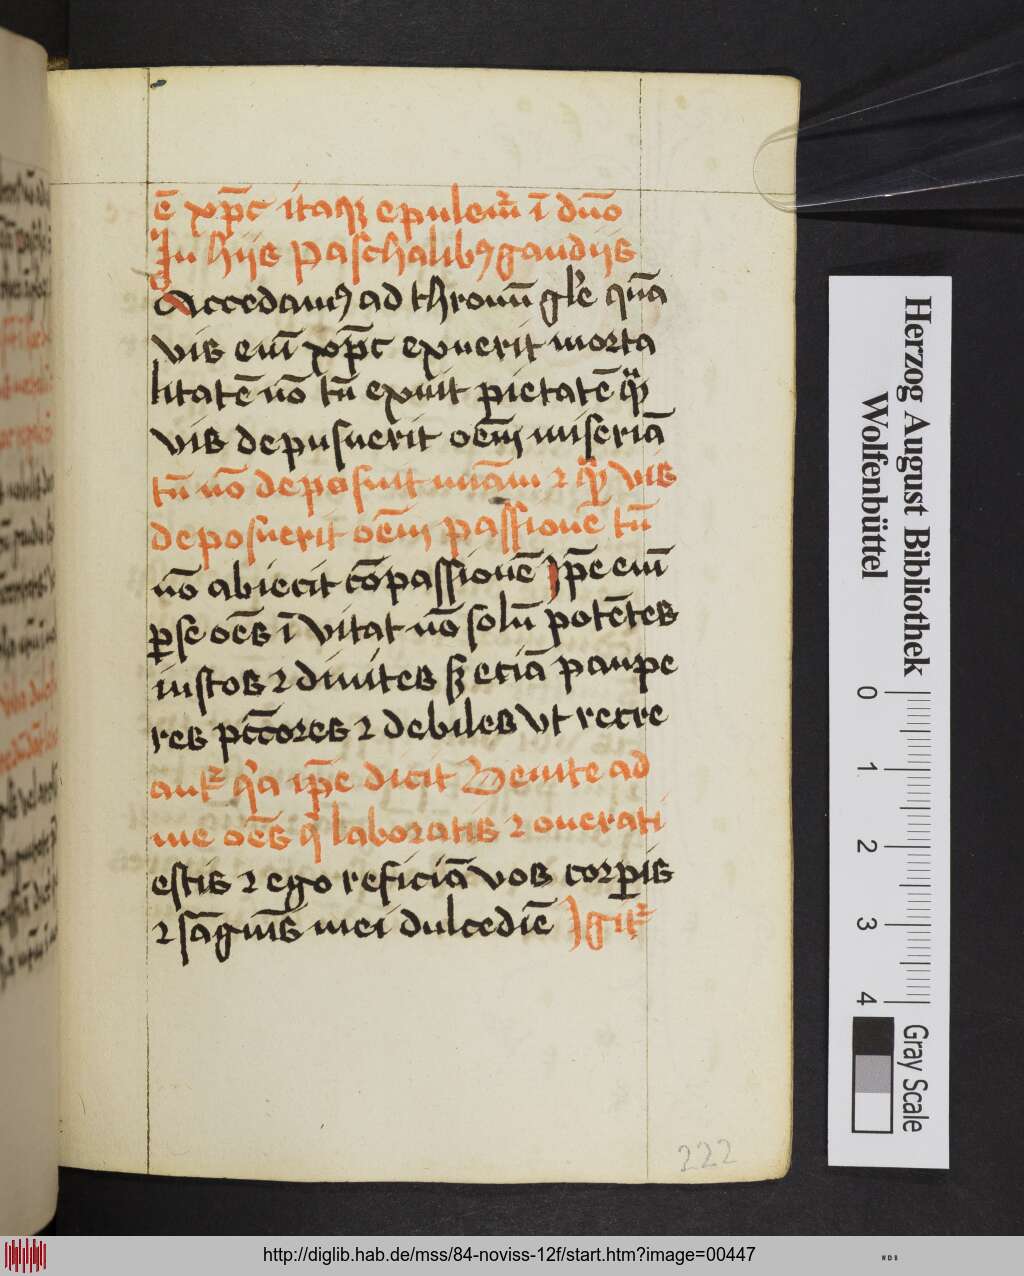 ē xp̄c itaqꝫ epulem̄ ī dūo
In hijs paschalibꝰ gaudijs
Accedamꝰ ad thronū gl̄e quā
vis enī xp̄c exuerit morta
litatē nō tn̄ exuit pietatē qͣꝫ
vis depusuerit oēm miseriā
tn̄ nō deposuit miām ⁊ qͣꝫ vis
deposuerit oēm passionē tn̄
nō abiecit cōpassionē Ip̄e enī
ꝑ se oēs īvitat nō solū potētes
iustos ⁊ diuites sꝫ eciā paupe
res pcc̄ores ⁊ debiles vt recre
ant᷑ qͥa ip̄e dicit Venite ad
me oēs qͥ laboratis ⁊ onerati
estis ⁊ ego reficiā vos corꝑis
⁊ sāguīs mei dulcedīe Igit᷑
222
Herzog August Bibliothek
Wolfenbüttel
0 1 2 3 4
Gray Scale
http://diglib.hab.de/mss/84-noviss-12f/start.htm?image=00447